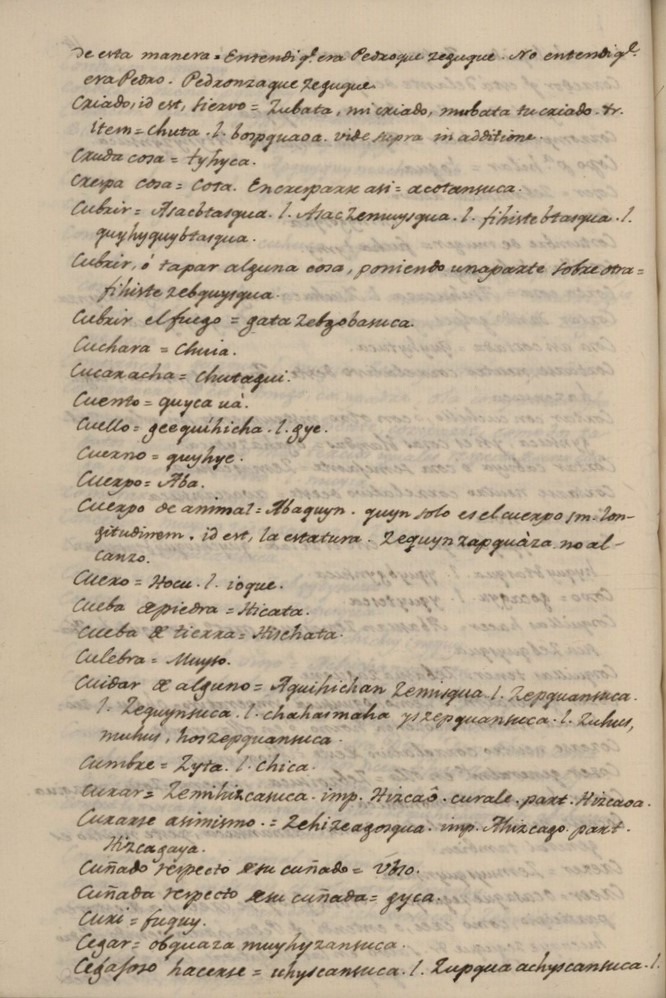 de esta manera = Entendi q̃ era Pedroque zeguque. No entendi q̃
era Pedro. Pedronzaque zeguque.
Criado, id est, siervo = Zubata, mi criado, mubata tu criado. &r.
item = chuta .l. bospquaoa. vide supra in additione.
Cruda cosa = tyhyca.
Crespa cosa = Cota. Encresparse asi = acotansuca.
Cubrir = Asacbtasqua .l. Asac zemuysqua .l. fihistebtasqua .l.
quyhyquybtasqua.
Cubrir, ó tapar alguna cosa, poniendo una parte sobre otra =
fihiste zebquysqua.
Cubrir el fuego = gata zebgobasuca.
Cuchara = Chuia.
Cucaracha = Chutaqui.
Cuento = quyca uà.
Cuello = geequihicha .l. gye.
Cuerno = quyhye.
Cuerpo = Aba.
Cuerpo de animal = Abaquyn. quyn solo es el cuerpo in lon-
gitudinem. id est, la estatura. Zequyn zapquàza no al-
canzo.
Cuero = Hocu .l. ioque.
Cueba de piedra = Hicata.
Cueba de tierra = Hischata.
Culebra = Muyso.
Cuidar de alguno = Aquihichan zemisqua .l. zepquansuca.
.l. Zequynsuca .l. chahasmaha yszepquansuca .l. Zuhus,
muhus, hoszepquansuca.
Cumbre = Zyta .l. chica.
curar = Zemihizcasuca. imp. Hizcaô. curale. part. Hizcaoa.
Curarse asimismo = Zehizcagosqua. imp. Ahizcago. part.
Hizcagaya.
Cuñado respecto de su cuñado = Ubso.
Cuñada respecto de su cuñada = gyca.
Curi = fuquy.
Cegar = obquaza muyhyzansuca.
Cegasoso hacerse = uhyscansuca .l. Zupqua achyscansuca .l.